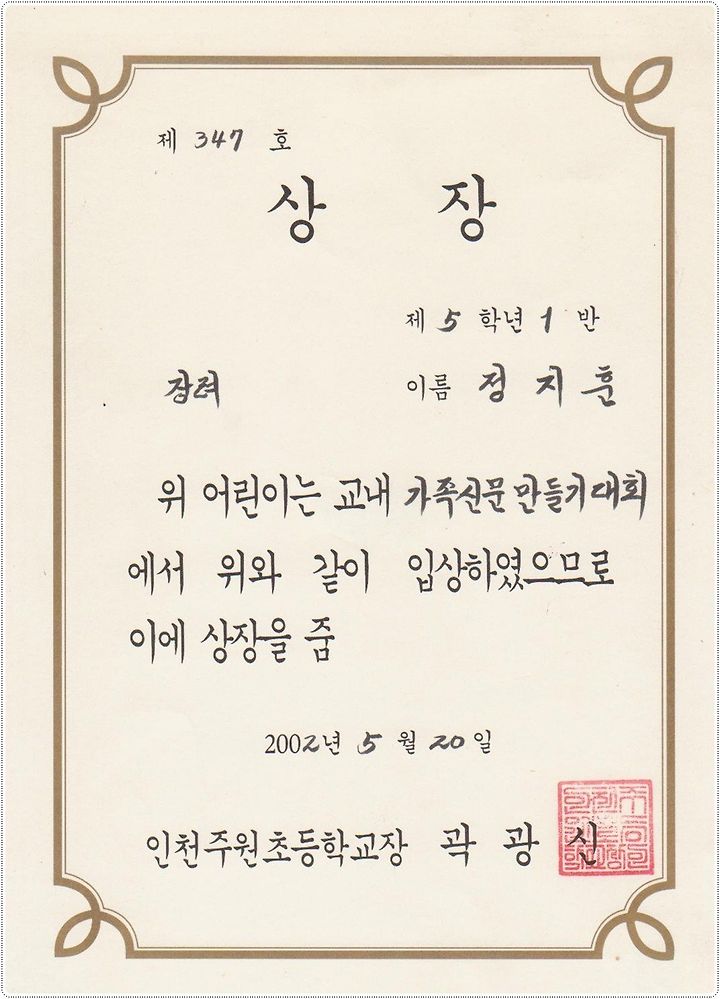 제 347 호
상 장
제 5 학년 1 반
장려 이름 정 지 훈
위 어린이는 교내 가족신문 만들기대회
에서 위와 같이 입상하였으므로
이에 상장을 줌
2002년 5 월 20 일
인천주원초등학교장 곽 광 신